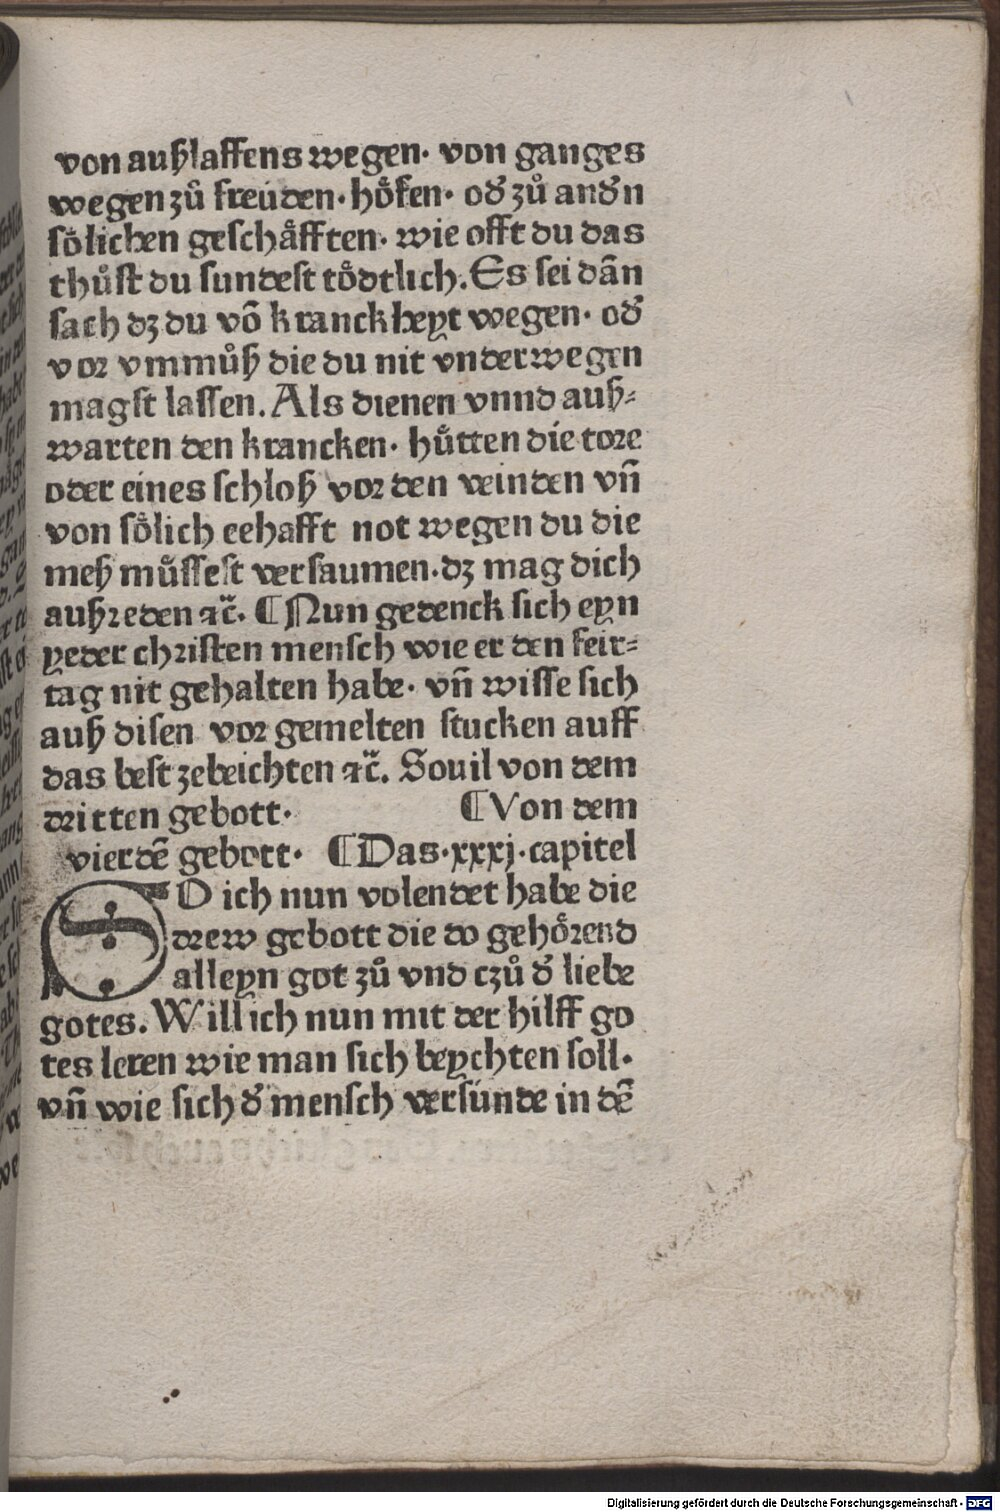 von auſzlaſſens wegen· von ganges
wegen zů freüden· hoͤfen· od̕ zů and̕n
ſoͤlichen geſchaͤfften· wie offt du das
thůſt du ſundeſt toͤdtlich. Es ſei dañ
ſach dz du võ kranckheyt wegen· od̕
vor vmmůſz die du nit vnderwegen
magſt laſſen. Als dienen vnnd auſz⸗
warten den krancken· huͤtten die tore
oder eines ſchloſz vor den veinden vñ
von ſoͤlich eehafft not wegen du die
meſz muͤſſeſt verſaumen· dz mag dich
auſzreden ⁊c̃. ¶ Nun gedenck ſich eyn
yeder chriſten menſch wie er den feir⸗
tag nit gehalten habe· vñ wiſſe ſich
auſz diſen vor gemelten ſtucken auff
das beſt zebeichten ⁊c̃. Souil von dem
dritten gebott· ¶ Von dem
vierdẽ gebott· ¶ Das·xxxj·capitel
SO ich nun volendet habe die
drew gebott die do gehoͤrend
alleyn got zů vnd czů d̕ liebe
gotes. Will ich nun mit der hilff go
tes leren wie man ſich beychten ſoll·
vñ wie ſich d̕ menſch verſünde in dẽ
Digitalisierung gefördert durch die Deutsche Forschungsgemeinschaft - DFG